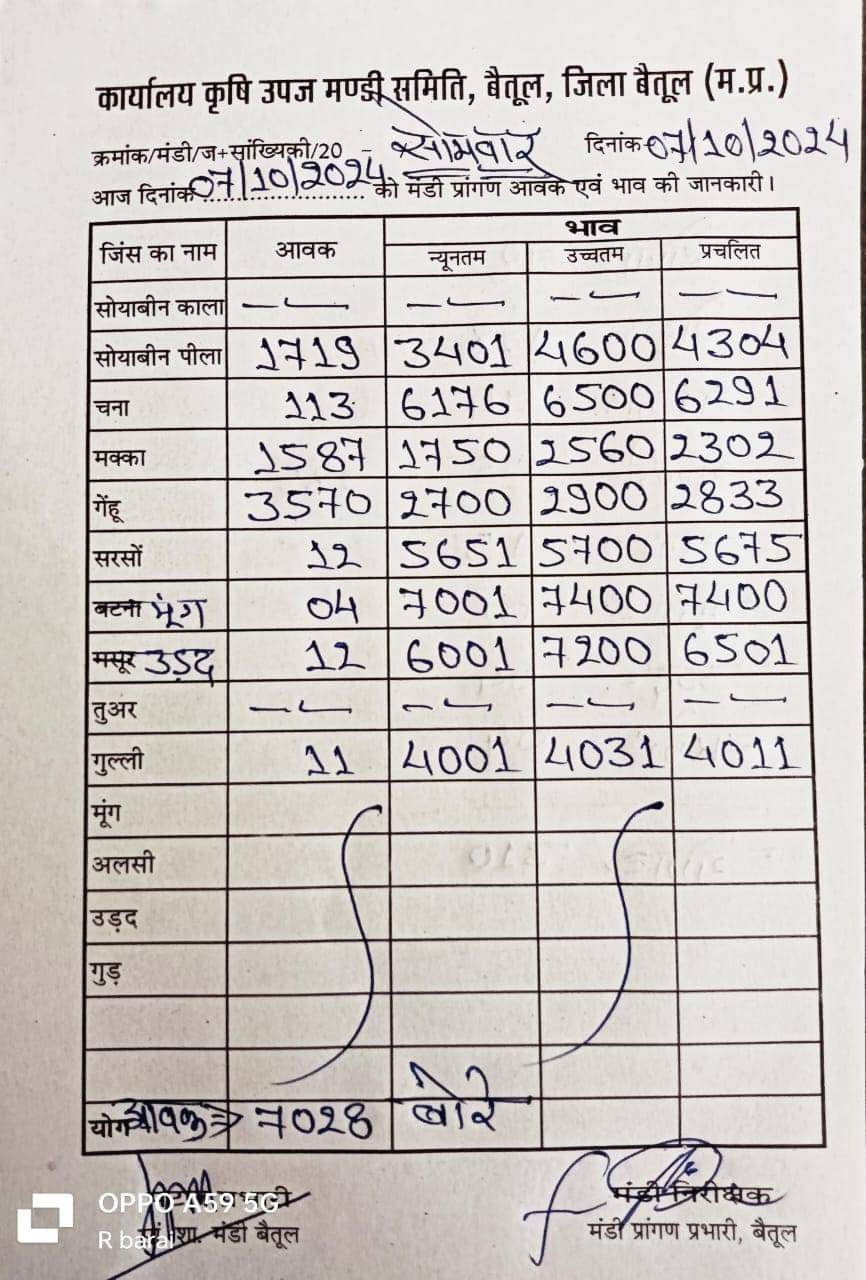 कार्यालय कृषि उपज मण्डी समिति, बैतूल, जिला बैतूल (म.प्र.)
क्रमांक/मंडी/ज+सांख्यिकी/20 - सोमवार दिनांक 07/10/2024
आज दिनांक 07/10/2024 को मंडी प्रांगण आवक एवं भाव की जानकारी।
जिंस का नाम आवक भाव
न्यूनतम उच्चतम प्रचलित
सोयाबीन काला — — — — — — — —
सोयाबीन पीला 1719 3401 4600 4304
चना 113 6176 6500 6291
मक्का 1587 1750 2560 2302
गेंहू 3570 2700 2900 2833
सरसों 12 5651 5700 5675
बटना मूंग 04 7001 7400 7400
मसूर उड़द 12 6001 7200 6501
तुअर — — — — — — — —
गुल्ली 11 4001 4031 4011
मूंग
अलसी
उड़द
गुड़
योग आवक → 7028 बोरे
मंडी निरीक्षक
शा. मंडी बैतूल मंडी प्रांगण प्रभारी, बैतूल
OPPO A59 5G
R barai